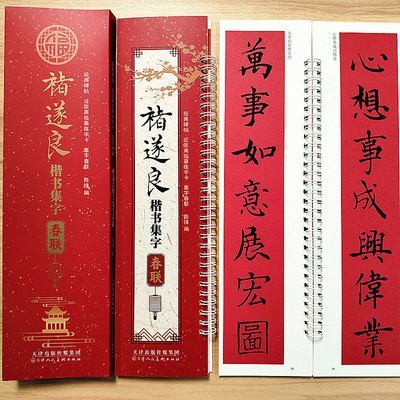 褚遂良
楷书集字
春联
经典碑帖
近距离临摹练字卡
集字春联
天津出版传媒集团
天津人民美术出版社
褚遂良
楷书集字
春联
经典碑帖
近距离临摹练字卡
集字春联
天津出版传媒集团
天津人民美术出版社
萬事如意展宏圖
心想事成興偉業